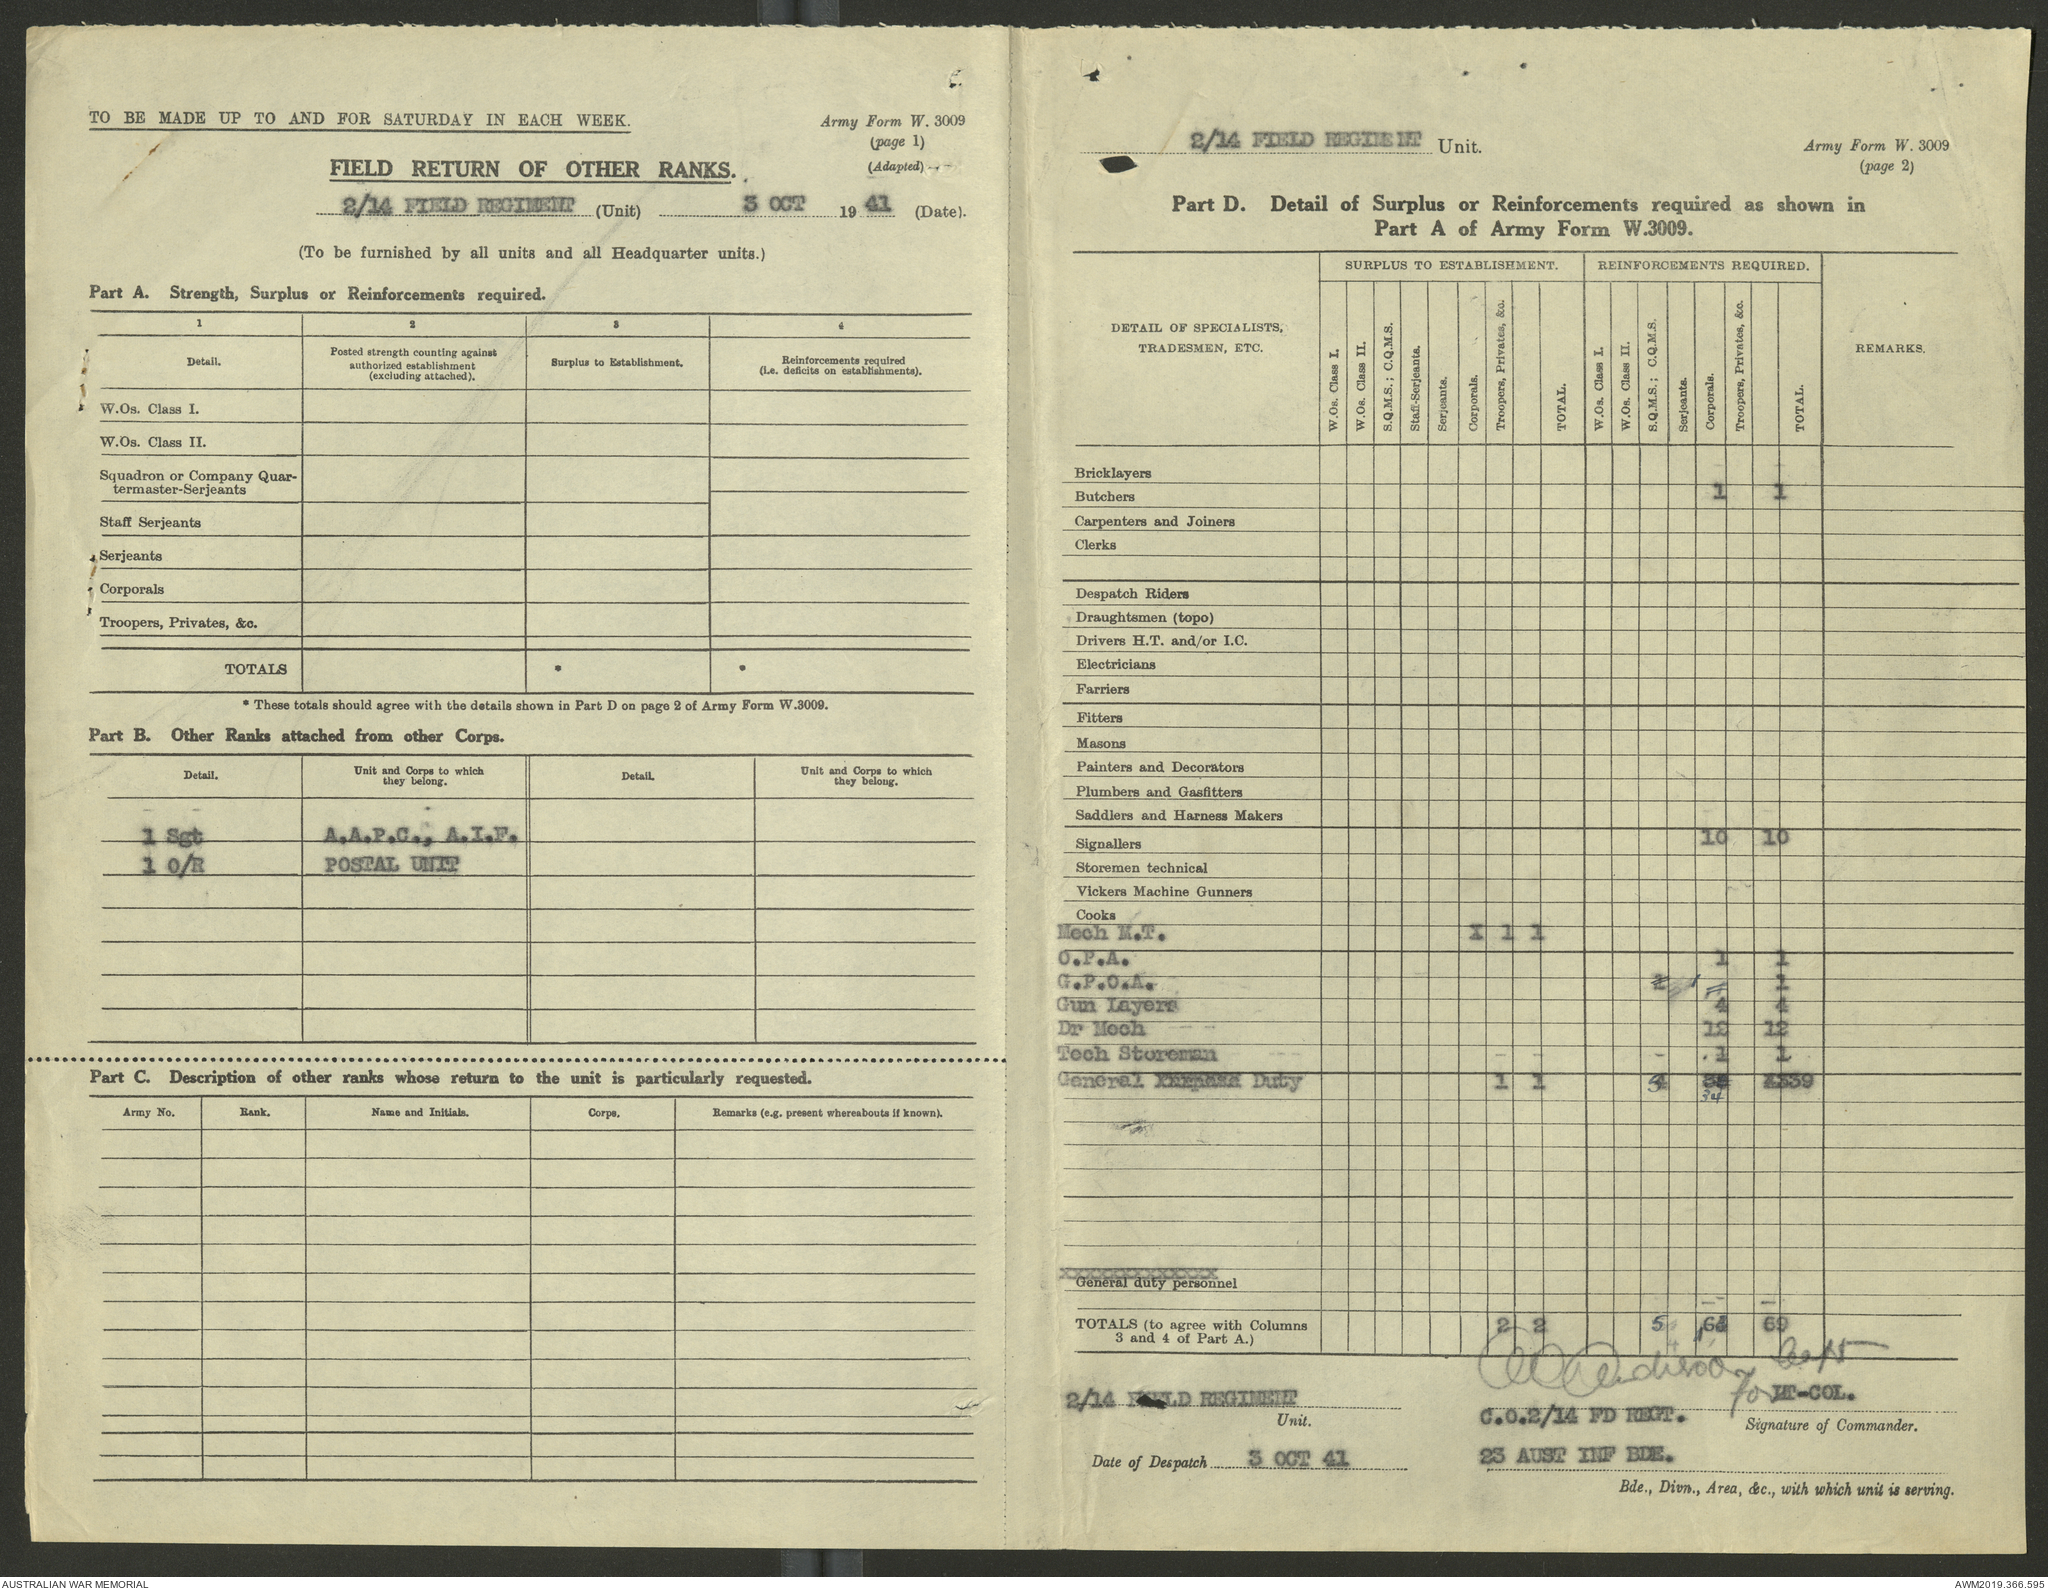 TO BE MADE UP TO AND FOR SATURDAY IN EACH WEEK.
Army Form W. 3009
(page 1)
(Adapted)
FIELD RETURN OF OTHER RANKS.
2/14 FIELD REGIMENT (Unit) 3 OCT 1941 (Date).
(To be furnished by all units and all Headquarter units.)
Part A. Strength, Surplus or Reinforcements required.
1 2 3 4
Detail. Posted strength counting against authorized establishment (excluding attached). Surplus to Establishment. Reinforcements required (i.e. deficits on establishments).
W.Os. Class I.
W.Os. Class II.
Squadron or Company Quar-
termaster-Serjeants
Staff Serjeants
Serjeants
Corporals
Troopers, Privates, &c.
TOTALS * *
* These totals should agree with the details shown in Part D on page 2 of Army Form W.3009.
Part B. Other Ranks attached from other Corps.
Detail. Unit and Corps to which they belong. Detail. Unit and Corps to which they belong.
1 Sgt A.A.P.C., A.I.F.
1 O/R POSTAL UNIT
Part C. Description of other ranks whose return to the unit is particularly requested.
Army No. Rank. Name and Initials. Corps. Remarks (e.g. present whereabouts if known).
2/14 FIELD REGIMENT Unit.
Army Form W. 3009
(page 2)
Part D. Detail of Surplus or Reinforcements required as shown in
Part A of Army Form W.3009.
DETAIL OF SPECIALISTS, TRADESMEN, ETC.
SURPLUS TO ESTABLISHMENT. REINFORCEMENTS REQUIRED.
REMARKS.
W.Os. Class I. W.Os. Class II. S.Q.M.S.; C.Q.M.S. Staff-Serjeants. Serjeants. Corporals. Troopers, Privates, &c. TOTAL.
W.Os. Class I. W.Os. Class II. S.Q.M.S.; C.Q.M.S. Serjeants. Corporals. Troopers, Privates, &c. TOTAL.
Bricklayers
Butchers 1 1
Carpenters and Joiners
Clerks
Despatch Riders
Draughtsmen (topo)
Drivers H.T. and/or I.C.
Electricians
Farriers
Fitters
Masons
Painters and Decorators
Plumbers and Gasfitters
Saddlers and Harness Makers
Signallers 10 10
Storemen technical
Vickers Machine Gunners
Cooks
Mech M.T. 1 1
O.P.A. 1 1
G.P.O.A. 2 1 1
Gun Layers 4 4
Dr Mech 12 12
Tech Storeman 1 1
General Duty 1 1 34 39
General duty personnel
TOTALS (to agree with Columns 2 2 5 69
3 and 4 of Part A.)
Capt
for LT-COL.
2/14 FIELD REGIMENT
Unit.
C.O.2/14 FD REGT.
Signature of Commander.
Date of Despatch 3 OCT 41
23 AUST INF BDE.
Bde., Divn., Area, &c., with which unit is serving.
AUSTRALIAN WAR MEMORIAL
AWM2019.366.595